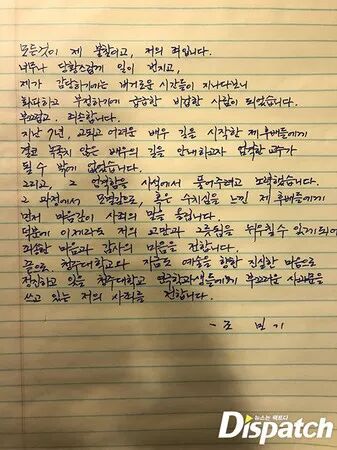 모든것이 제 불찰이고, 저의 죄입니다.
너무나 당황스럽게 일이 번지고,
제가 감당하기에는 버거운 시간들이 지나다보니
회피하고 부정하기에 급급한 비겁한 사람이 되었습니다.
부끄럽고, 죄송합니다.
지난 7년, 고되고 어려운 배우 길을 시작한 제 후배들에게
결코 녹록치 않은 배우의 길을 안내하고자 엄격한 교수가
될 수 밖에 없었습니다.
그리고, 그 엄격함을 사석에서 풀어주려고 노력했습니다.
그 과정에서 모멸감으로, 혹은 수치심을 느낀 제 후배들에게
먼저 마음깊이 사죄의 말을 올립니다.
덕분에 이제라도 저의 교만과 그릇됨을 뉘우칠 수 있게 되어
죄송한 마음과 감사의 마음을 전합니다.
끝으로, 청주대학교와 지금도 예술을 향한 진실한 마음으로
정진하고 있을 청주대학교 연극학과생들에게 부끄러운 사과문을
쓰고 있는 저의 사죄를 전합니다.
- 조 민 기
뉴스는 팩트다
Dispatch